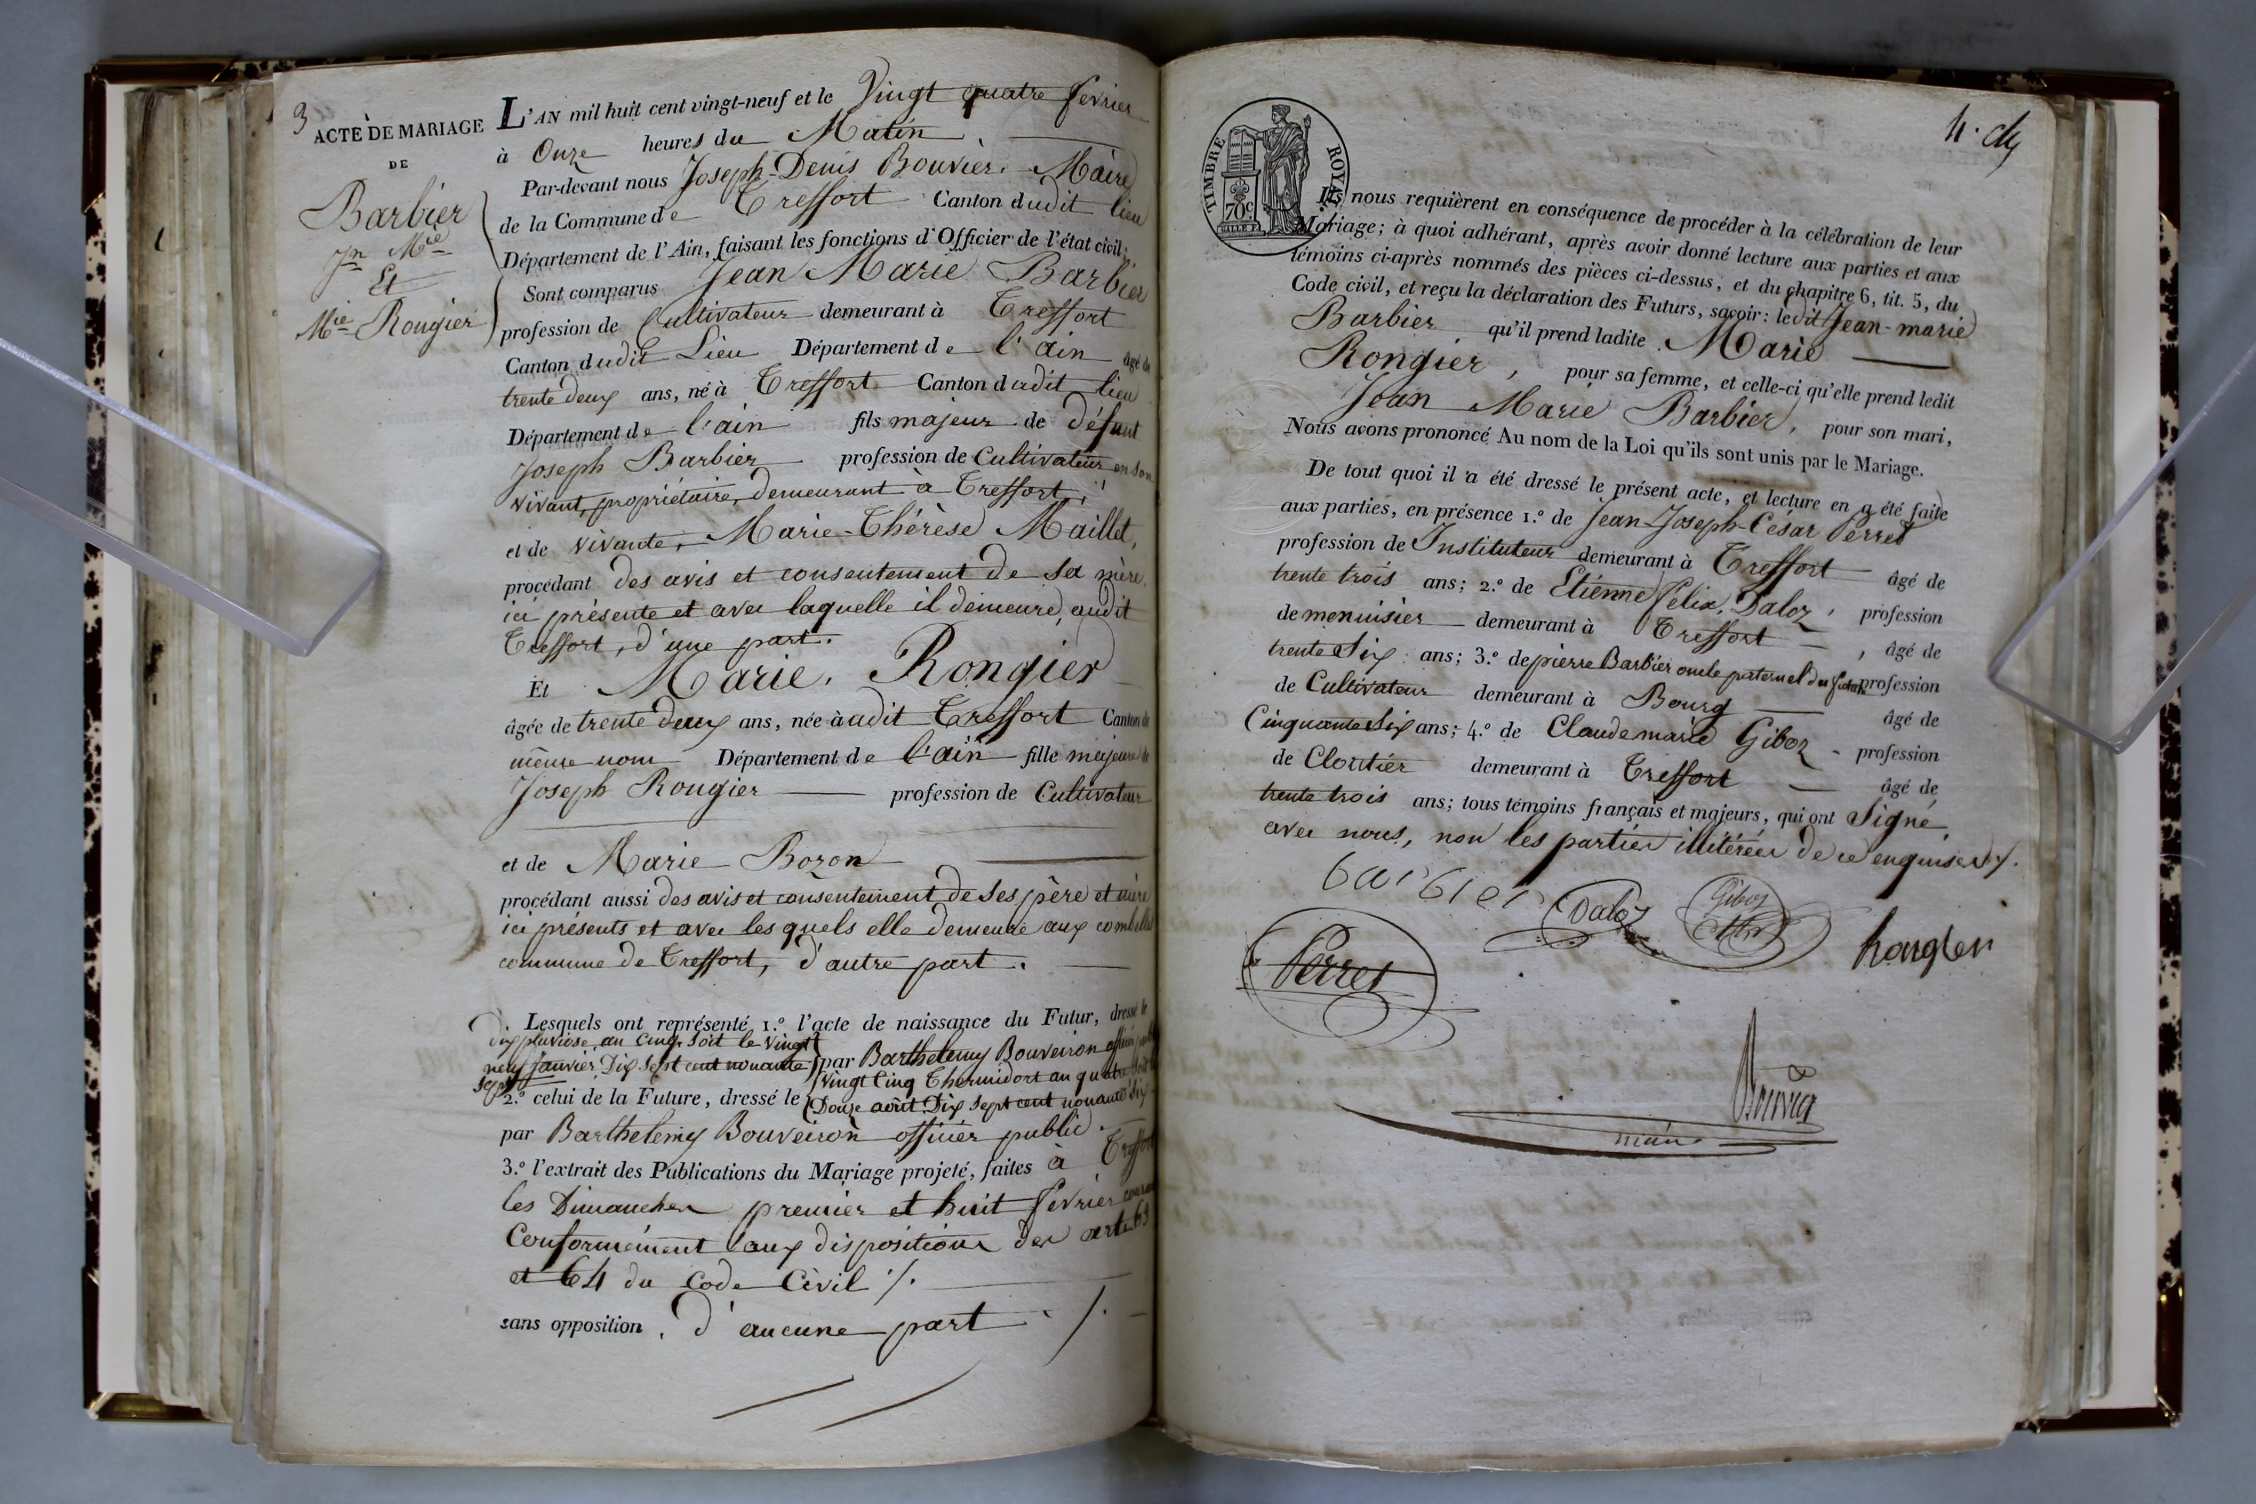 3
ACTE DE MARIAGE
DE
Barbier
Jn Mie
Et
Mie Rongier
L'AN mil huit cent vingt-neuf et le Vingt quatre fevrier
à Onze heures du Matin
Par-devant nous Joseph-Denis Bouvier. Maire
de la Commune de Treffort Canton dudit lieu
Département de l'Ain, faisant les fonctions d'Officier de l'état civil;
Sont comparus Jean Marie Barbier
profession de Cultivateur demeurant à Treffort
Canton dudit Lieu Département de l'ain âgé de
trente deux ans, né à Treffort Canton dudit lieu
Département de l'ain fils majeur de défunt
Joseph Barbier profession de Cultivateur en son
vivant, propriétaire, demeurant à Treffort,
et de vivante, Marie-Thérèse Maillet,
procédant des avis et consentement de sa mère
ici présente et avec laquelle il demeure, audit
Treffort, d'une part.
Et Marie, Rongier
âgée de trente deux ans, née audit Treffort Canton de
même nom Département de l'ain fille majeure de
Joseph Rougier profession de Cultivateur
et de Marie Bozon
procédant aussi des avis et consentement de ses père et mère
ici présents et avec les quels elle demeure aux
commune de Treffort, d'autre part.
Lesquels ont représenté 1.º l'acte de naissance du Futur, dressé le
dix pluviose an cinq, soit le vingt
neuf janvier Dix sept cent nonante
sept par Barthelemy Bouveiron officier public
2.º celui de la Future, dressé le Vingt Cinq Thermidort an quatre soit le
Douze août Dix sept cent nonante six
par Barthelemy Bouveiron officier public.
3.º l'extrait des Publications du Mariage projeté, faites à Treffort
les Dimanches premier et huit fevrier courant
Conformément aux dispositions des arts 63
et 64 du Code Civil ./.
sans opposition, d'aucune part ./.
4.
TIMBRE ROYAL
70c
Ils nous requièrent en conséquence de procéder à la célébration de leur
Mariage; à quoi adhérant, après avoir donné lecture aux parties et aux
témoins ci-après nommés des pièces ci-dessus, et du chapitre 6, tit. 5, du
Code civil, et reçu la déclaration des Futurs, savoir: ledit Jean-marie
Barbier qu'il prend ladite Marie
Rongier, pour sa femme, et celle-ci qu'elle prend ledit
Jean Marie Barbier, pour son mari,
Nous avons prononcé Au nom de la Loi qu'ils sont unis par le Mariage.
De tout quoi il a été dressé le présent acte, et lecture en a été faite
aux parties, en présence 1.º de Jean-Joseph-César Perret
profession de Instituteur demeurant à Treffort âgé de
trente trois ans; 2.º de Etienne Félix Daloz, profession
de menuisier demeurant à Treffort, âgé de
trente Six ans; 3.º de pierre Barbier oncle paternel du futur profession
de Cultivateur demeurant à Bourg âgé de
Cinquante Six ans; 4.º de Claude marie Giboz profession
de Cloutier demeurant à Treffort âgé de
trente trois ans; tous témoins français et majeurs, qui ont Signé,
avec nous, non les parties illitérées de ce enquises ./.
barbier
Daloz
Giboz
Perret
Bouvier
maire